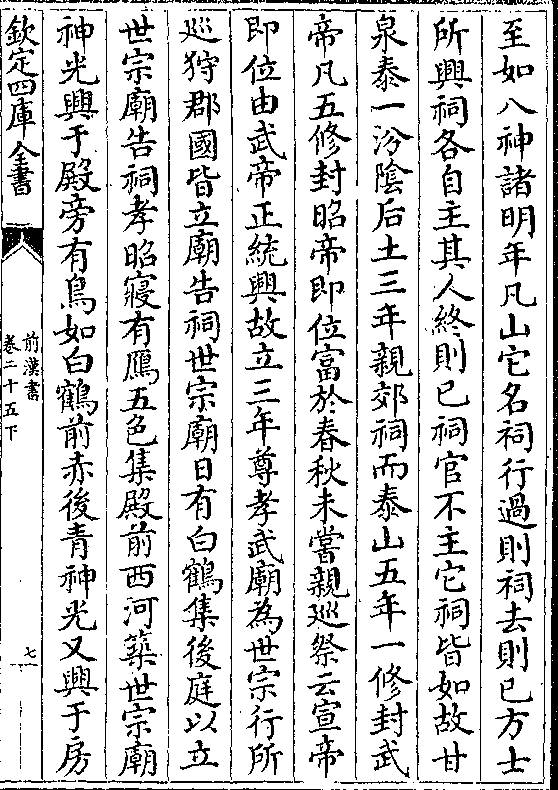 至如八神諸明年凡山它名祠行過則祠去則已方士
所興祠各自主其人終則已祠官不主它祠皆如故甘
泉泰一汾陰后土三年親郊祠而泰山五年一修封武
帝凡五修封昭帝即位富於春秋未嘗親巡祭云宣帝
即位由武帝正統興故立三年尊孝武廟為世宗行所
巡狩郡國皆立廟告祠世宗廟日有白鶴集後庭以立
世宗廟告祠孝昭寢有鴈五色集殿前西河築世宗廟
神光興于殿旁有鳥如白鶴前赤後青神光又興于房
欽定四庫全書
前漢書
卷二十五下
七